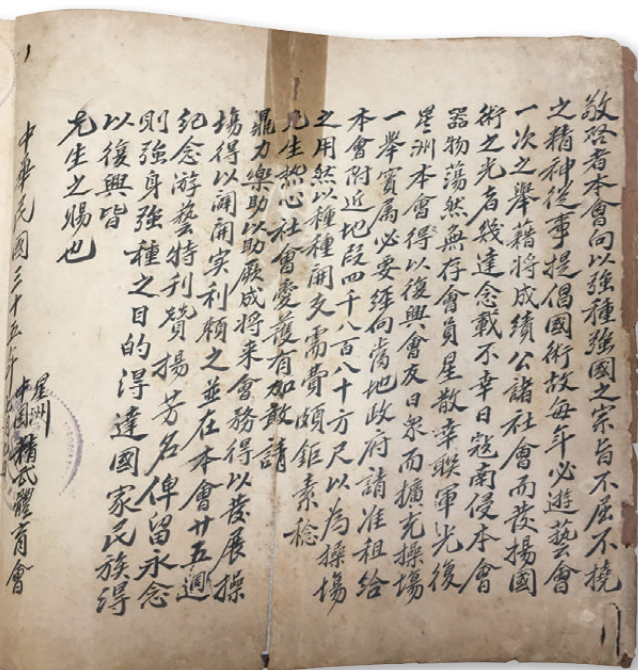 敬啓者本會向以強種強國之宗旨不屈不撓
之精神從事提倡國術故每年必遊藝會
一次之舉藉將成績公諸社會而發揚國
術之光者幾達念載不幸日寇南侵本會
器物蕩然無存會員星散幸聯軍光復
星洲本會得以復興會友日衆而擴充操場
一舉實屬必要經向當地政府請准租給
本會附近地段四千八百八十方尺以為操場
之用然以種種開支需費頗鉅素稔
先生熱心社會愛護有加敬請
鼎力樂助以助厥成將来會務得以發展操
場得以開闢实利賴之並在本會廿五週
紀念游藝特刊贊揚芳名俾留永念
則強身強種之目的得達國家民族得
以復興皆
先生之賜也
中華民國三十五年
星洲
中國精武體育會